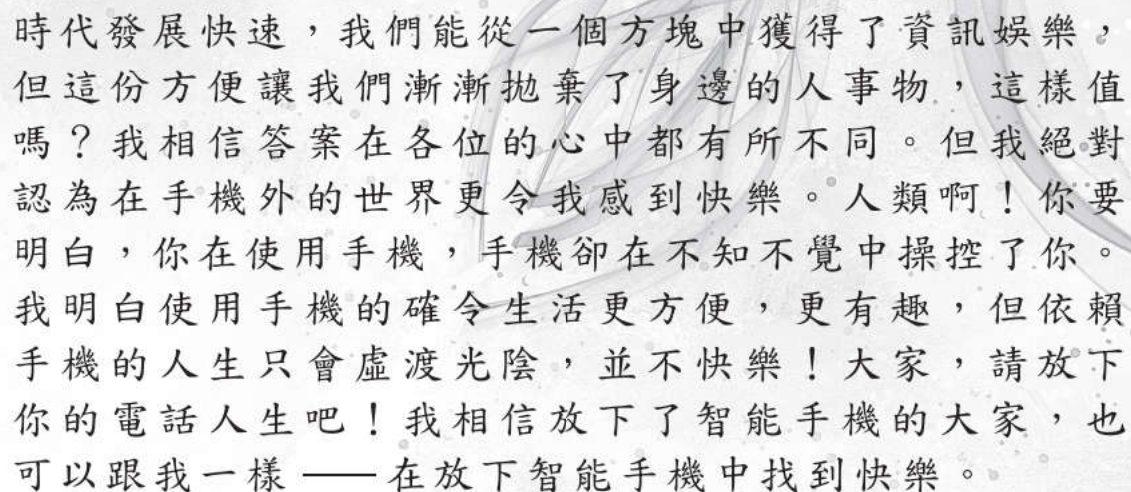 時代發展快速，我們能從一個方塊中獲得了資訊娛樂，
但這份方便讓我們漸漸拋棄了身邊的人事物，這樣值
嗎？我相信答案在各位的心中都有所不同。但我絕對
認為在手機外的世界更令我感到快樂。人類啊！你要
明白，你在使用手機，手機卻在不知不覺中操控了你。
我明白使用手機的確令生活更方便，更有趣，但依賴
手機的人生只會虛渡光陰，並不快樂！大家，請放下
你的電話人生吧！我相信放下了智能手機的大家，也
可以跟我一樣 —— 在放下智能手機中找到快樂。